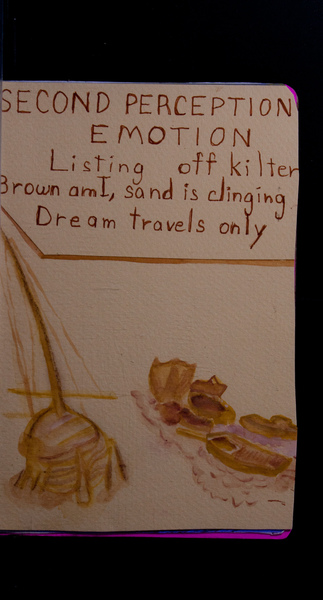 SECOND PERCEPTION
EMOTION
Listing off kilter
Brown am I, sand is clinging
Dream travels only